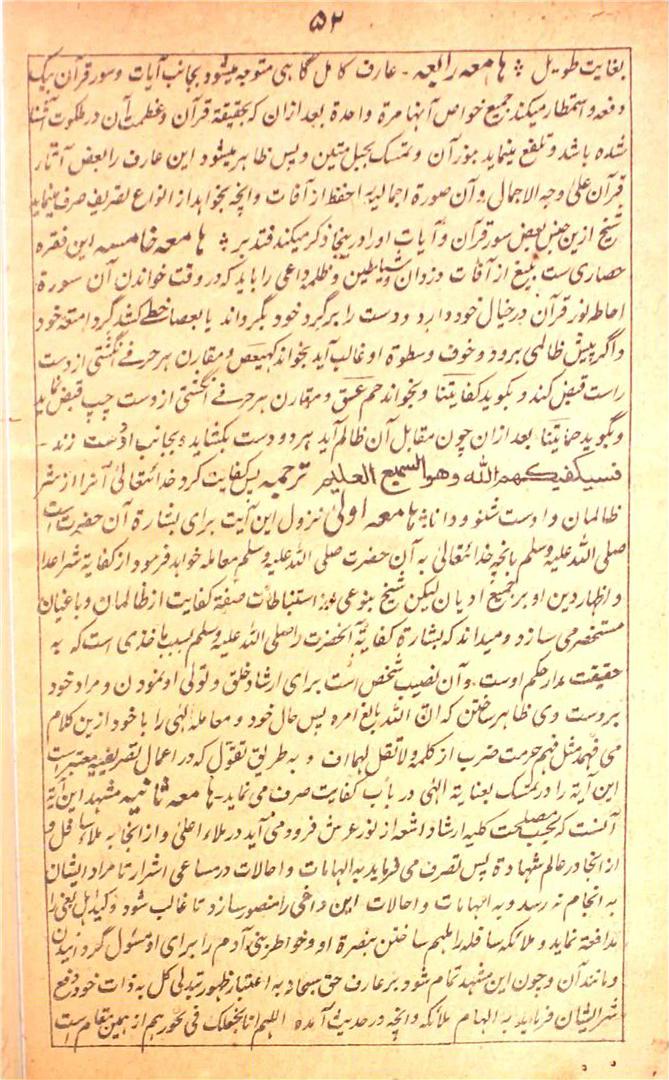 ۵۲
بغایت طویل ÷ هامعه رابعه - عارف کامل گاهی متوجه میشود بجانب آیات و سور قرآن بیک
دفعه و استمطار میکند جمیع خواص آنها مرة واحدة بعد ازان که بحقیقة قرآن و عظمت آن در ملکوت آشنا
شده باشد و تلفع مینماید بنور آن و تمسک بحبل متین و پس ظاهر میشود این عارف را بعض آثار
قرآن علی وجه الاجمال و آن صورة اجمالیه احفظ از آفات و آنچه بخواهد از انواع تصریف صرف مینماید
شیخ ازین جنس بعض سور قرآن و آیات او را درینجا ذکر میکند فتدبر ÷ هامعه خامسه این فقره
حصاری ست بلیغ از آفات دزدان و شیاطین و ظلمه داعی را باید که در وقت خواندن آن سورة
احاطه نور قرآن در خیال خود دارد و دست را بر گرد خود بگرداند یا بعصا خطے کشد گرد امتعه خود
و اگر پیش ظالمی برود و خوف و سطوة او غالب آید بخواند کهیعص و مقارن هر حرفے انگشتی از دست
راست قبض کند و بگوید کفایتنا و بخواند حم عسق و مقارن هر حرفے انگشتی از دست چپ قبض نماید
و بگوید حمایتنا بعد ازان چون مقابل آن ظالم آید هر دو دست بکشاید و بجانب او دست زند -
فسیکفیکهم الله وهو السمیع العلیم ترجمه پس کفایت کرد خدائتعالی آنرا از شر
ظالمان و اوست شنوه و دانا ÷ هامعه اولی نزول این آیت برای بشارة آن حضرت است
صلی الله علیه وسلم بآنچه خدائتعالی به آن حضرت صلی الله علیه وسلم معامله خواهد فرمود از کفایة شر اعدا
و اظهار دین او بر جمیع ادیان لیکن شیخ بنوعی از استنباطات صفة کفایت از ظالمان و باغیان
مستحضر می سازد و میداند که بشارة کفایة آنحضرت را صلی الله علیه وسلم بسبب ماخذی است که به
حقیقت مدار حکم اوست و آن نصیب شخص است برای ارشاد خلق و تولی او نمودن و مراد خود
بر دست وی ظاهر ساختن که ان الله بالغ امره پس حال خود و معامله الهی را با خود ازین کلام
می فهمد مثل فهم حرمت ضرب از کلمه ولا تقل لهما اف و به طریق تفول که در اعمال تصریفیه معتبر است
این آیة را در تمسک بعنایة الهی در باب کفایت صرف می نماید - هامعه ثانیه مشهد این آیة
آنست که بحسب مصلحت کلیه ارشاد اشعه از نور عرش فرود می آید در ملاء اعلی و از انجا به ملاء سافل و
از انجا در عالم شهادة پس تصرف می فرماید به الهامات و احالات در مساعی اشرار تا مراد ایشان
به انجام نه رسد و به الهامات و احالات این داعی را منصور سازد تا غالب شود و کید اهل بغی را
مدافعة نماید و ملائکه سافله را ملهم ساختن بنصرة او و خواطر بنی آدم را برای او مسئول گردانیدن
و مانند آن و چون این مشهد تمام شود بر عارف حق سبحانه به اعتبار ظهور تبدلی کل به ذات خود دفع
شر ایشان فرماید به الهام ملائکه و آنچه در حدیث آمده اللهم انا نجعلک فی نحورهم از همین مقام است